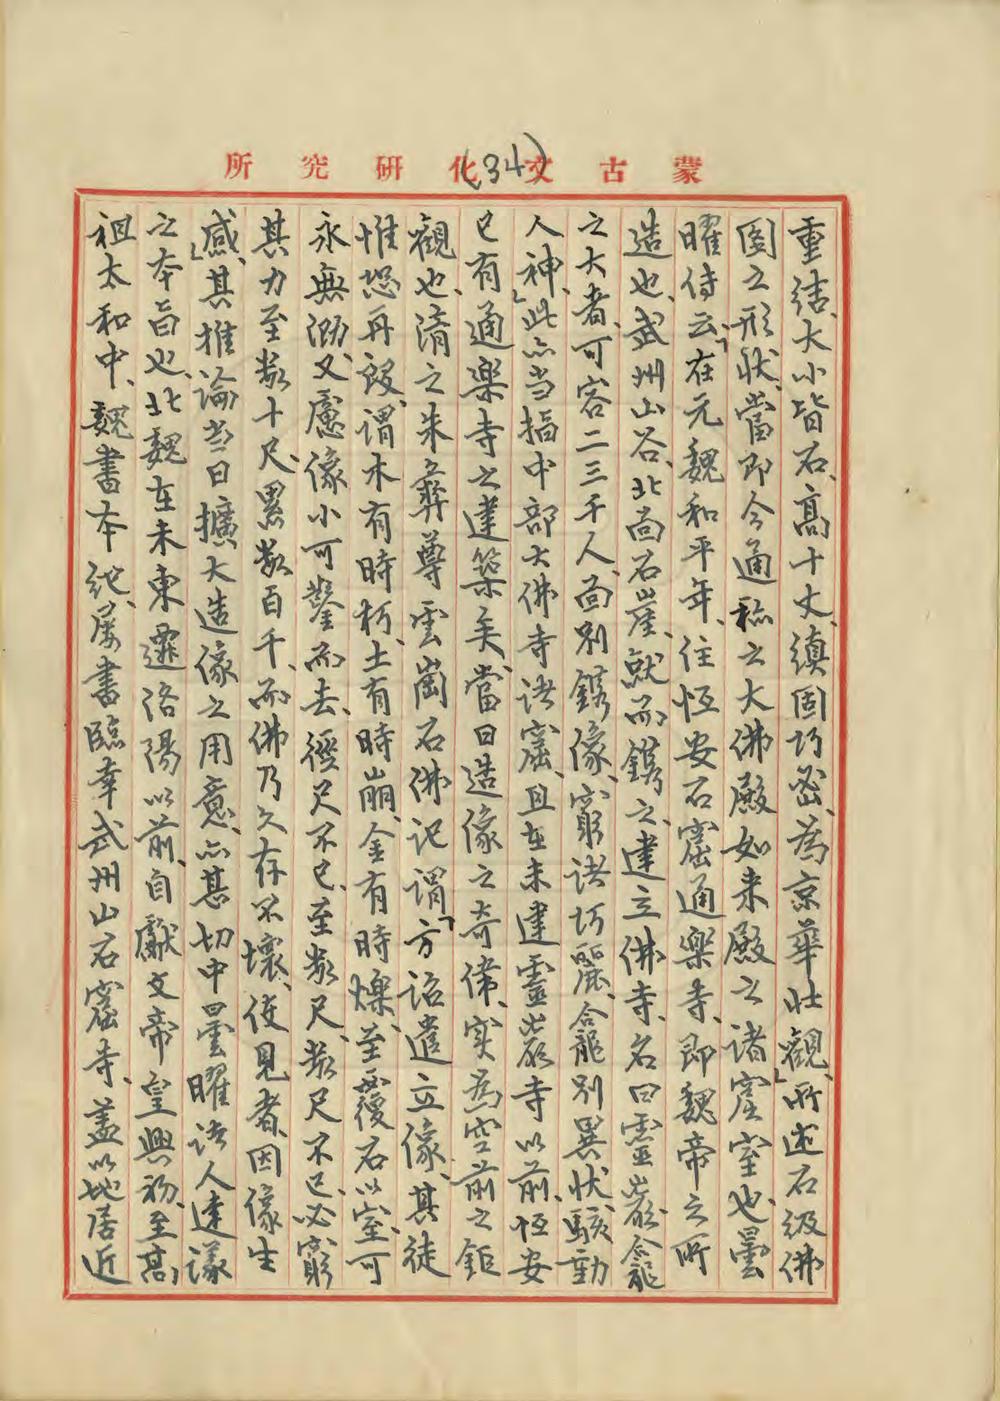 蒙古文化研究所
(34)
重結、大小皆石、高十丈、縝固巧密、為京華壯觀」、所述石級佛
圖之形狀、當即今通稱之大佛殿如来殿之諸窟室也、曇
曜傳云、「在元魏和平年、往恆安石窟通樂寺、即魏帝之所
造也、武州山谷、北面石崖、就而鐫之、建立佛寺、名曰靈巖、龕
之大者、可容二三千人、面別鐫像、窮諸巧麗、龕別異狀、駭動
人神、」此亦当指中部大佛寺諸窟、且在未建靈巖寺以前、恆安
已有通樂寺之建築矣、當日造像之奇偉、实為空前之鉅
觀也、清之朱彝尊雲崗石佛记謂、「方詔遣立像、其徒
惟恐再毀、謂木有時朽、土有時崩、金有時爍、至覆石以室、可
永無泐、又慮像小可鑿而去、徑尺不已、至数尺、数尺不已、必窮
其力至数十尺、累数百千、而佛乃久存不壞、使見者、因像生
感、」其推論当日擴大造像之用意、亦甚切中曇曜諸人建議
之本旨也、北魏在未東遷洛陽以前、自獻文帝皇興初、至高
祖太和中、魏書本紀、屢書臨幸武州山石窟寺、蓋以地居近